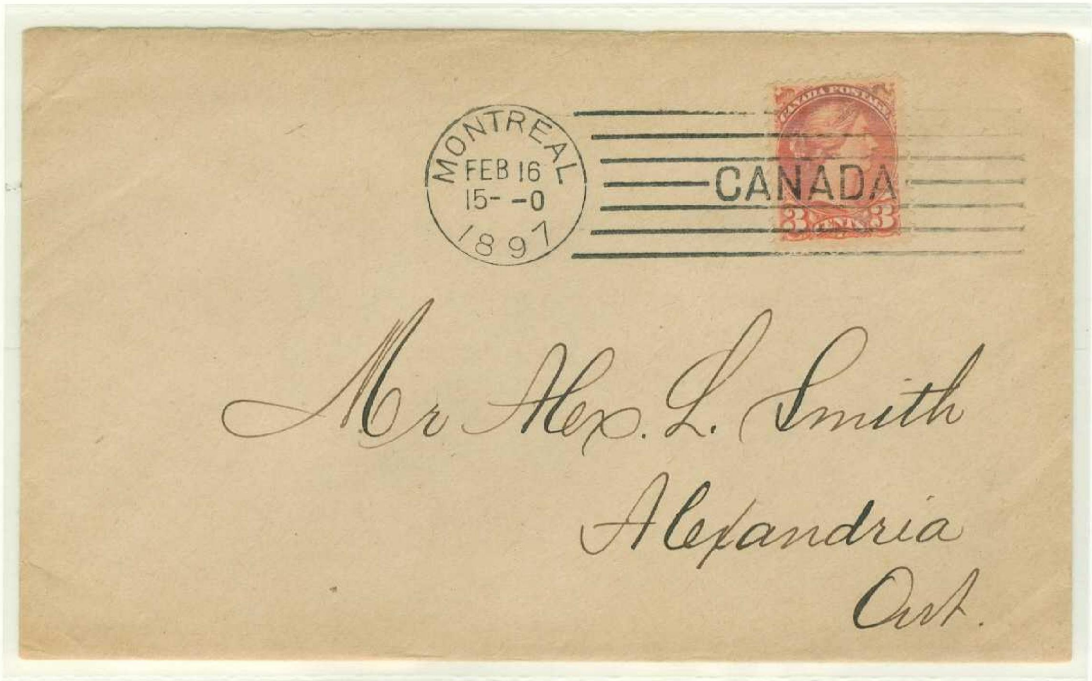 MONTREAL
FEB 16
15- -0
1897
CANADA POSTAGE
CANADA
3 CENTS 3
Mr Alex. L. Smith
Alexandria
Ont.